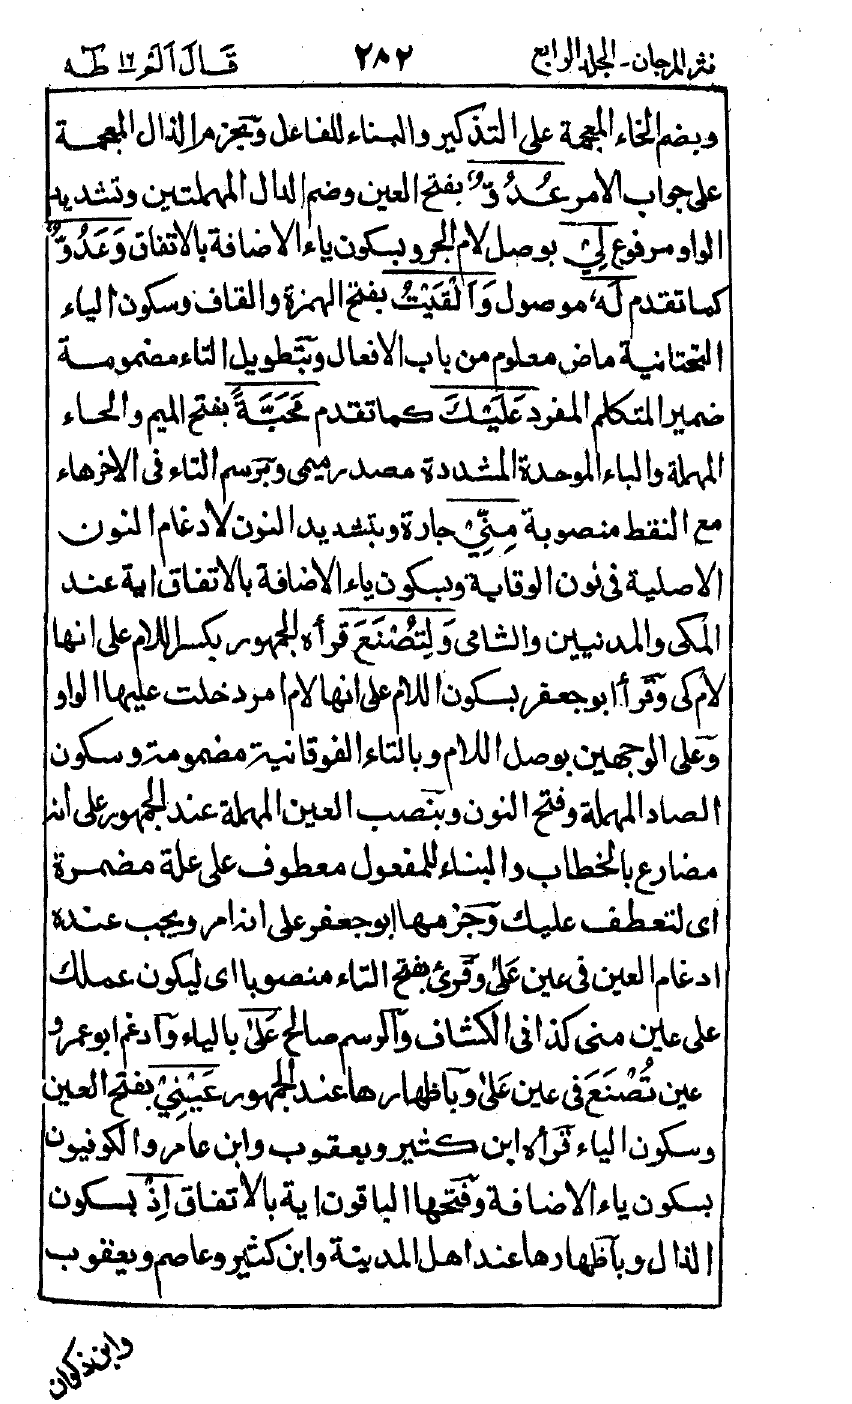 نثر المرجان - المجلد الرابع ٢٨٢ قَالَ اَلَمْ ١٦ طٰهٰ
وبضم الخاء المعجمة على التذكير والبناء للفاعل وَبجزم الذال المعجمة
على جواب الامر عَدُوٌّ بفتح العين وضم الدال المهملتين وتشديد
الواو مرفوع لِيْ بوصل لام الجر وبسكون ياء الاضافة بالاتفاق وَعَدُوٌّ
كما تقدم لَهٗ موصول وَاَلْقَيْتُ بفتح الهمزة والقاف وسكون الياء
التحتانية ماض معلوم من باب الافعال وبتطويل التاء مضمومة
ضمير المتكلم المفرد عَلَيْكَ كما تقدم مَحَبَّةً بفتح الميم والحاء
المهملة والباء الموحدة المشددة مصدر ميمى وبرسم التاء فى الاخر هاء
مع النقط منصوبة مِنِّيْ جارة وبتشديد النون لادغام النون
الاصلية فى نون الوقاية وبسكون ياء الاضافة بالاتفاق اية عند
المكى والمدنيين والشامى وَلِتُصْنَعَ قرأه الجمهور بكسر اللام على انها
لام كى وَقرأ ابو جعفر بسكون اللام على انها لام امر دخلت عليها الواو
وَعلى الوجهين بوصل اللام وبالتاء الفوقانية مضمومة وسكون
الصاد المهملة وفتح النون وبنصب العين المهملة عند الجمهور على انه
مضارع بالخطاب والبناء للمفعول معطوف على علة مضمرة
اى لتعطف عليك وَجزمها ابو جعفر على انه امر ويجب عنده
ادغام العين فى عين عَلٰى وَقرئ بفتح التاء منصوبا اى ليكون عملك
على عين منى كذا فى الكشاف وَالرسم صالح عَلٰى بالياء وَادغم ابو عمرو
عين تُصْنَعَ فى عين عَلٰى وَباظهارها عند الجمهور عَيْنِيْ بفتح العين
وسكون الياء قرأه ابن كثير ويعقوب وابن عامر والكوفيون
بسكون ياء الاضافة وَفتحها الباقون اية بالاتفاق اِذْ بسكون
الذال وباظهارها عند اهل المدينة وابن كثير وعاصم ويعقوب
وابن ذكوان